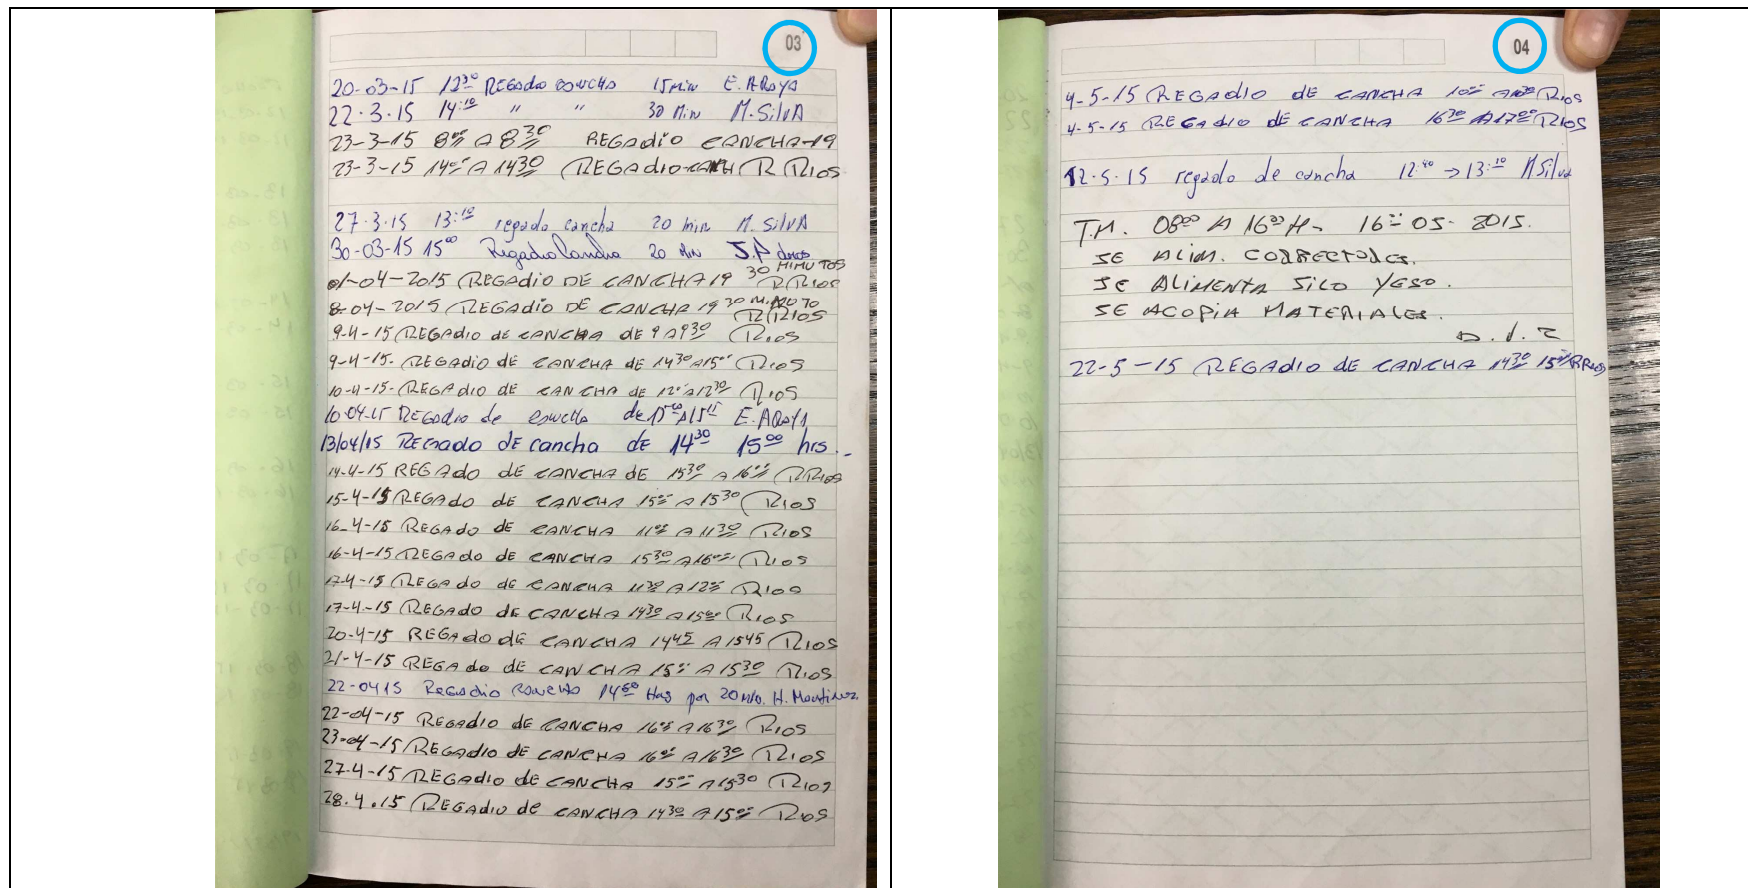 03
20-03-15 12³⁰ REGADO CANCHA 15 min E. ARAYA
22.3.15 14:¹⁰ " " 30 Min M. SilVA
23-3-15 8⁰⁰ A 8³⁰ REGADIO CANCHA-19
23-3-15 14⁰⁰ A 14³⁰ REGADIO-CANH R RIOS
27.3.15 13:¹⁰ regado cancha 20 min M. SilVA
30-03-15 15⁰⁰ Regadio Cancha 20 Min
01-04-2015 REGADIO DE CANCHA 19 30 MINUTOS R RIOS
8-04-2015 REGADIO DE CANCHA 19 30 R RIOS
9-4-15 REGADIO DE CANCHA DE 9 A 9³⁰ RIOS
9-4-15- REGADIO DE CANCHA DE 14³⁰ A 15⁰⁰ RIOS
10-4-15- REGADIO DE CANCHA DE 12⁰⁰ A 12³⁰ RIOS
10-04-15 Regadio de cancha de E. ARAYA
13/04/15 REGADO DE cancha DE 14³⁰ 15⁰⁰ hrs.
14-4-15 REGADO DE CANCHA DE 15³⁰ A 16⁰⁰ RRIOS
15-4-15 REGADO DE CANCHA 15⁰⁰ A 15³⁰ RIOS
16-4-15 REGADO DE CANCHA 11⁰⁰ A 11³⁰ RIOS
16-4-15 REGADO DE CANCHA 15³⁰ A 16⁰⁰ RIOS
17-4-15 REGADO DE CANCHA 11³⁰ A 12⁰⁰ RIOS
17-4-15 REGADO DE CANCHA 14³⁰ A 15⁰⁰ RIOS
20-4-15 REGADO DE CANCHA 14⁴⁵ A 15⁴⁵ RIOS
21-4-15 REGADO DE CANCHA 15⁰⁰ A 15³⁰ RIOS
22-04 15 Regadio CANCHA Hrs por 20 H. Martinez
22-04-15 REGADIO DE CANCHA 16⁰⁰ A 16³⁰ RIOS
23-04-15 REGADIO DE CANCHA 16⁰⁰ A 16³⁰ RIOS
27-4-15 REGADIO DE CANCHA 15⁰⁰ A 15³⁰ RIOS
28.4.15 REGADIO DE CANCHA 14³⁰ A 15⁰⁰ RIOS
04
4-5-15 REGADIO DE CANCHA 10⁰⁰ A 10³⁰ RIOS
4-5-15 REGADIO DE CANCHA 16³⁰ A 17⁰⁰ RIOS
12-5-15 regado de cancha 12:⁴⁰ → 13:¹⁰ M Silva
T.M. 08⁰⁰ A 16³⁰ H- 16-05-2015.
SE ALIM. CORRECTORES.
SE ALIMENTA SILO YESO.
SE ACOPIA MATERIALES.
22-5-15 REGADIO DE CANCHA 14³⁰ 15⁰⁰ RRIOS